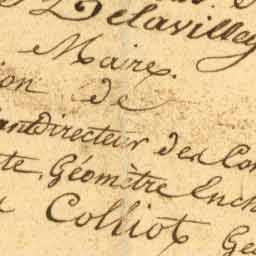 Delavilley
Maire.
ion de
directeur des Con
te, Géomètre en ch
Colliot Gé